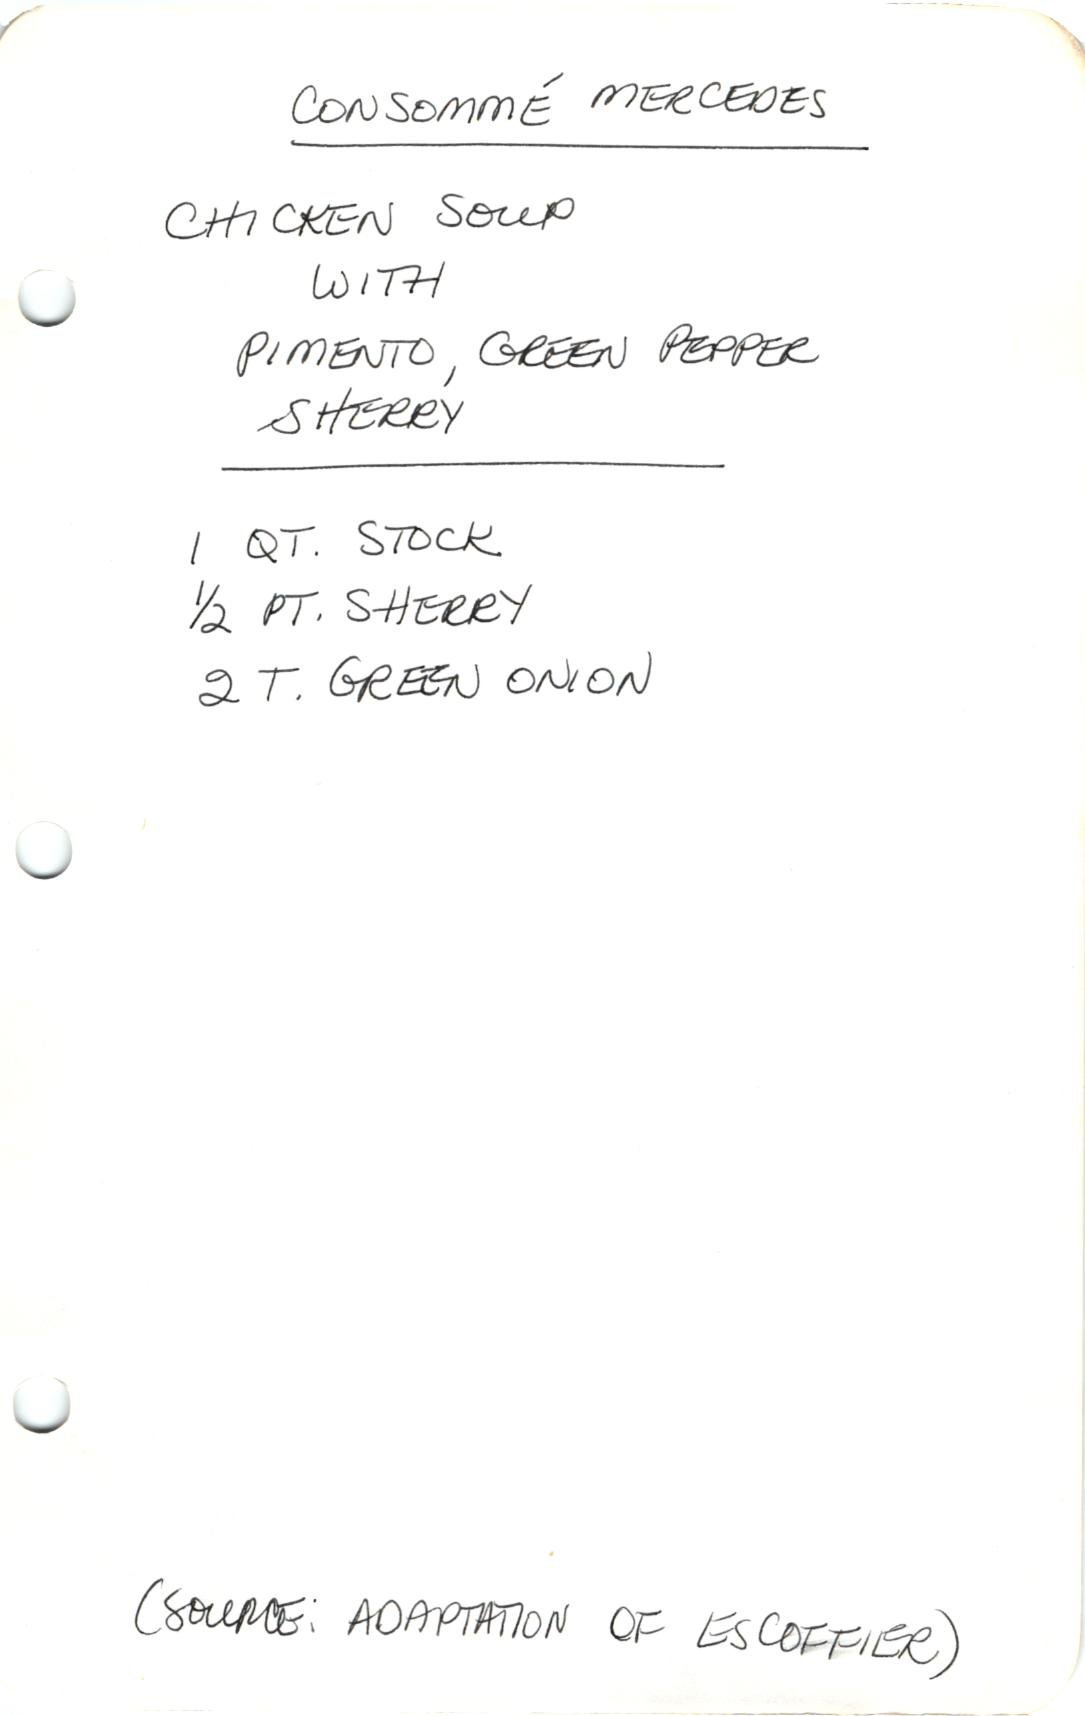 CONSOMMÉ MERCEDES
CHICKEN SOUP
WITH
PIMENTO, GREEN PEPPER
SHERRY
1 QT. STOCK
1/2 PT. SHERRY
2 T. GREEN ONION
(SOURCE: ADAPTATION OF ESCOFFIER)